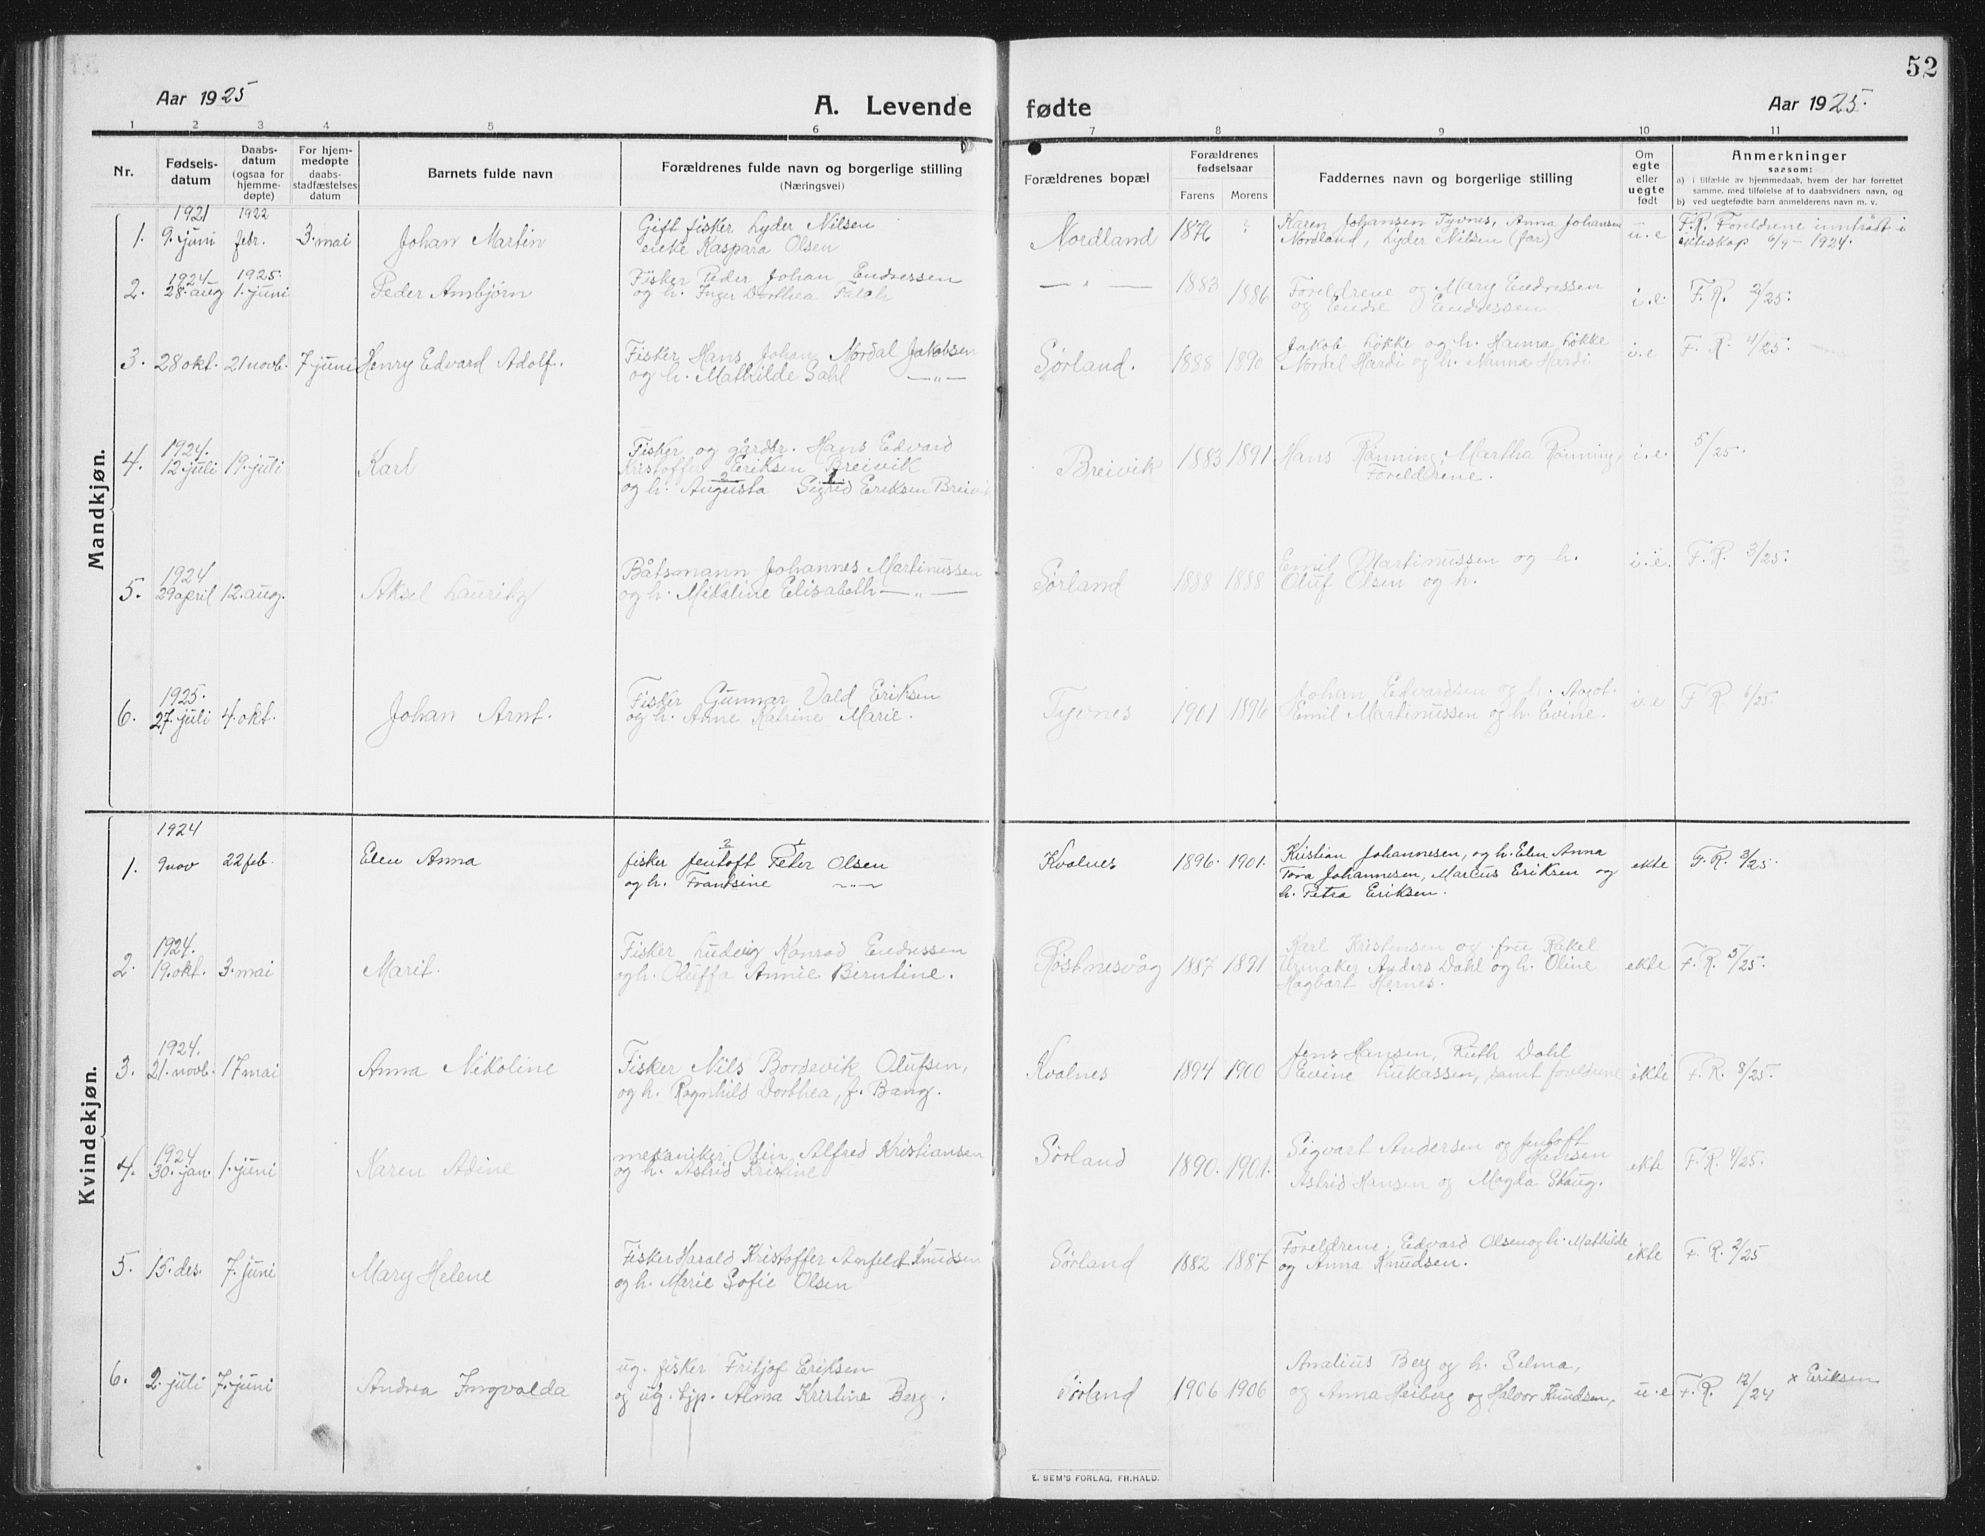 52
Aar 1925
A. Levende
fødte
Aar 1925.
1 2 3 4 5 6 7 8 9 10 11
Nr.
Fødsels-
datum
Daabs-
datum
(ogsaa for
hjemme-
døpte)
For hjem-
medøpte
daabs-
stadfæstelses
datum
Barnets fulde navn
Forældrenes fulde navn og borgerlige stilling
(Næringsvei)
Forældrenes bopæl
Forældrenes
fødselsaar
Farens Morens
Faddernes navn og borgerlige stilling
Om
egte
eller
uegte
født
Anmerkninger
saasom:
a) i tilfælde av hjemmedaab, hvem der har forrettet
samme, med tilføielse af to daabsvidners navn, og
b) ved uegtefødte barn anmelderens navn m. v.
Mandkjøn.
1921 1922
1. 9. juni febr. 3. mai Johan Martin
Gift fisker Lyder Nilsen
enke Kaspara Olsen
Nordland 1876 ?
Karen Johansen Tyvnes, Anna Johansen
Nordland, Lyder Nilsen (far)
u. e
F.R. Foreldrene inntrådt i
ekteskap 6/9 - 1924.
1924 1925.
2. 28. aug 1. juni Peder Ambjørn
Fisker Peder Johan Endressen
og h. Inger Dorthea Falch
— " — 1883 1886
Foreldrene og Mary Endressen
og Endre Endressen
i. e. F. R. 2/25.
3. 28 okt. 21 novb. 7 juni Henry Edvard Adolf.
Fisker Hans Johan Nordal Jakobsen
og h. Mathilde Dahl —"—
Sørland. 1888 1890
Jakob Løkke og h. Hanna Løkke
Nordal Hardi og h. Nanna Hardi
i. e F. R. 4/25.
1924.
4. 12 juli 19. juli Karl
Fisker og gårdbr. Hans Edvard
Kristoffer Eriksen Breivik
2 1
og h. Augusta Sigrid Eriksen Breivik
Breivik 1883 1891
Hans Rønning, Martha Rønning,
Foreldrene.
i. e 5/25.
1924
5. 29 april 12. aug. Aksel Lauritz
Båtsmann Johannes Martinussen
og h. Mikaline Elisabeth — " —
Sørland 1888 1888
Emil Martinussen og h.
Oluf Olsen og h.
i. e. F. R. 3/25.
1925.
6. 27. juli 4. okt. Johan Arnt.
Fisker Gunnar Vald Eriksen
og h. Anne Katrine Marie.
Tyvnes 1901 1896
Johan Edvardsen og h. Aagot.
Emil Martinussen og h. Evine.
i. e F. R 6/25.
Kvindekjøn.
1924
1. 9 nov 22 feb. Elen Anna
2 1
fisker Jentoft Peter Olsen
og h. Frantsine —"—
Kvalnes 1896. 1901.
Kristian Johannesen, og h. Elen Anna
Tora Johannesen, Marcus Eriksen og
h. Petra Eriksen.
ekte F. R. 3/25.
1924.
2. 19. okt. 3. mai Marit.
Fisker Ludvig Konrad Endressen
og h. Oluffa Annie Berntine.
Røstnesvåg 1887 1891
Karl Kristensen og frue Rakel
Urmaker Anders Dahl og h. Oline
Hagbart Hernes.
ekte F. R. 5/25.
1924.
3. 21. novb. 17 mai Anna Nikoline
Fisker Nils Bordevik Olufsen,
og h. Ragnhild Dorthea, f. Bang.
Kvalnes 1894 1900
Jens Hansen, Ruth Dahl
Evine Lukassen, samt foreldrene
ekte F. R. 8/25.
1924
4. 30. jan. 1. juni Karen Adine
mekaniker Odin Alfred Kristiansen
og h. Astrid Kristine
Sørland 1890. 1901.
Sigvart Andersen og Jentoft
Hansen
Astrid Hansen og Magda Skaug.
ekte F. R. 4/25.
5. 15. des. 7. juni Mary Helene
Fisker Harald Kristoffer Amfeldt Knudsen
og h. Marie Sofie Olsen
Sørland 1882 1887
Foreldrene. Edvard Olsen og h. Mathilde
og Anna Knudsen.
ekte F. R. 2/25
6. 2. juli 7. juni Andrea Ingvalda
ug. fisker Fritjof Eriksen
og ug. tjp. Alma Kristine Berg.
Sørland 1906 1906
Analius Berg og h. Selma,
og Anna Heiberg og Halvor Knudsen,
u. e F. R. 12/24 x Eriksen
E. SEM'S FORLAG, FR.HALD.